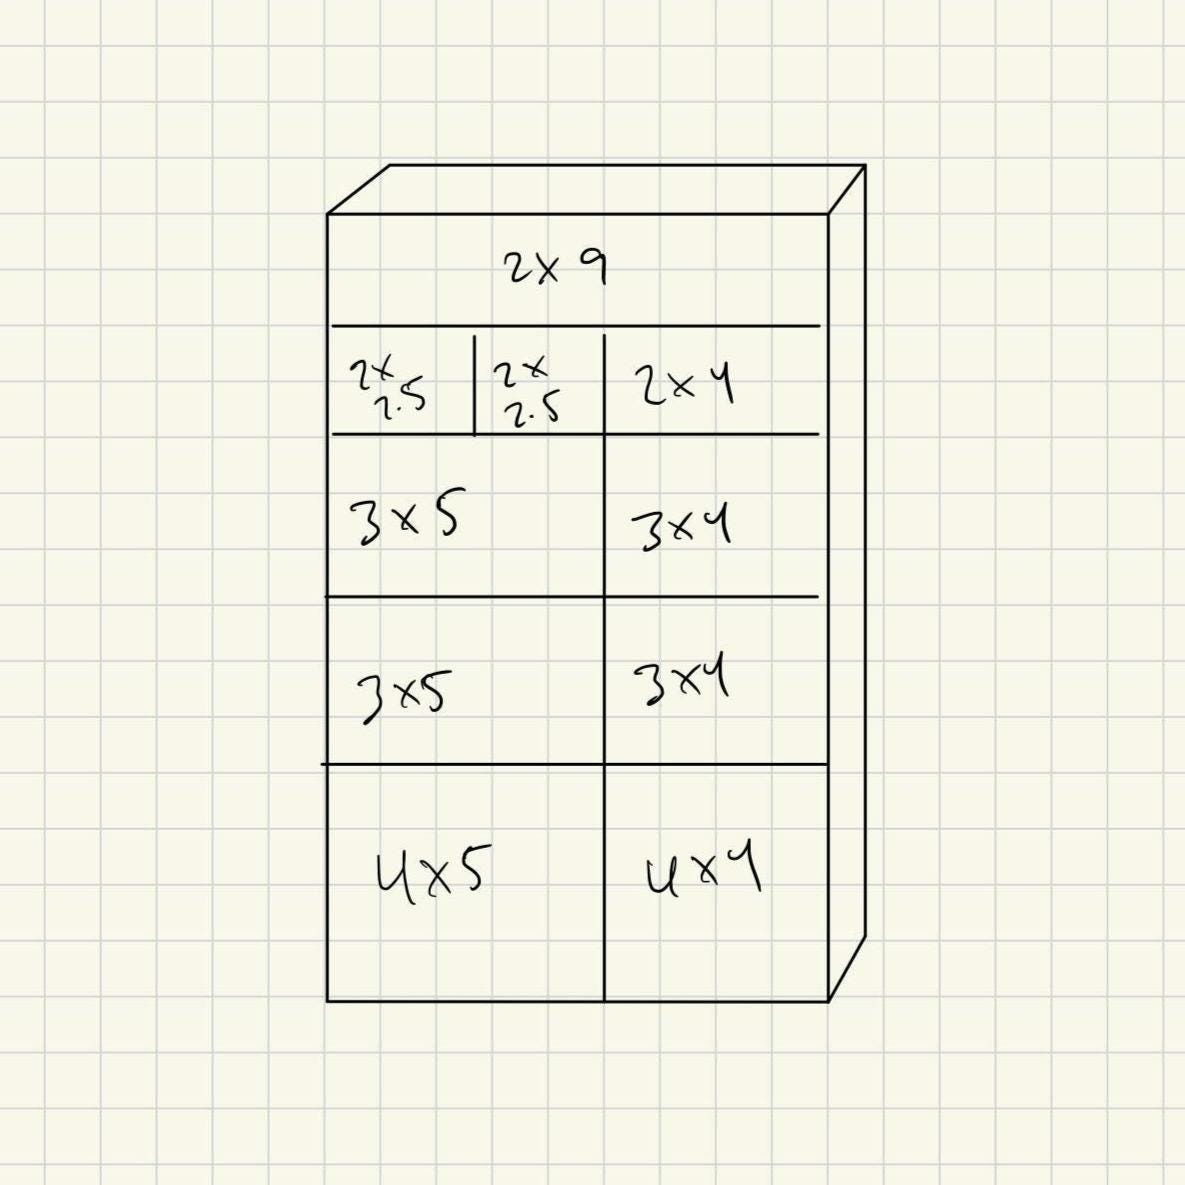 2x9
2x
2.5
2x
2.5
2x4
3x5
3x4
3x5
3x4
4x5
4x4